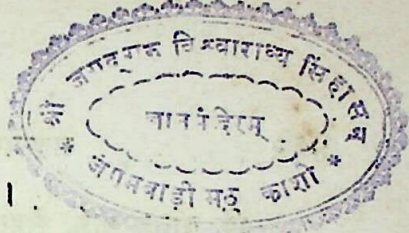 श्री जगद्गुरू विश्वाराध्य सिंहासन
ज्ञानमंदिरम्
* जंगमवाड़ी मठ काशी *
।